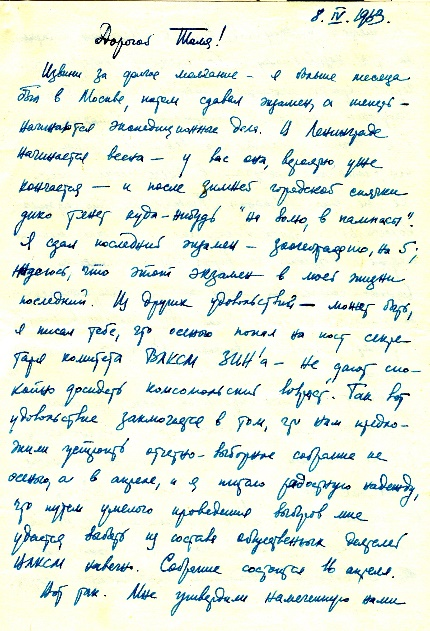 8. IV. 1963.
Дорогой Толя!
Извини за долгое молчание – я больше месяца
был в Москве, потом сдавал экзамен, а теперь –
начинаются экспедиционные дела. В Ленинграде
начинается весна – у вас она, вероятно уже
кончается – и после зимней городской спячки
дико тянет куда-нибудь "на волю, в пампасы".
Я сдал последний экзамен – зоогеографию, на 5;
надеюсь, что этот экзамен в моей жизни
последний. Из других удовольствий – может быть,
я писал тебе, что осенью попал на пост секре-
таря комитета ВЛКСМ ЗИН'а – не дают спо-
койно досидеть комсомольский возраст. Так вот
удовольствие заключается в том, что нам предло-
жили устроить отчетно-выборное собрание не
осенью, а в апреле, и я питаю радостную надежду,
что путем умелого проведения выборов мне
удастся выбыть из состава общественных деятелей
ВЛКСМ навечно. Собрание состоится 16 апреля.
Вот так. Мне утвердили намеченную нами